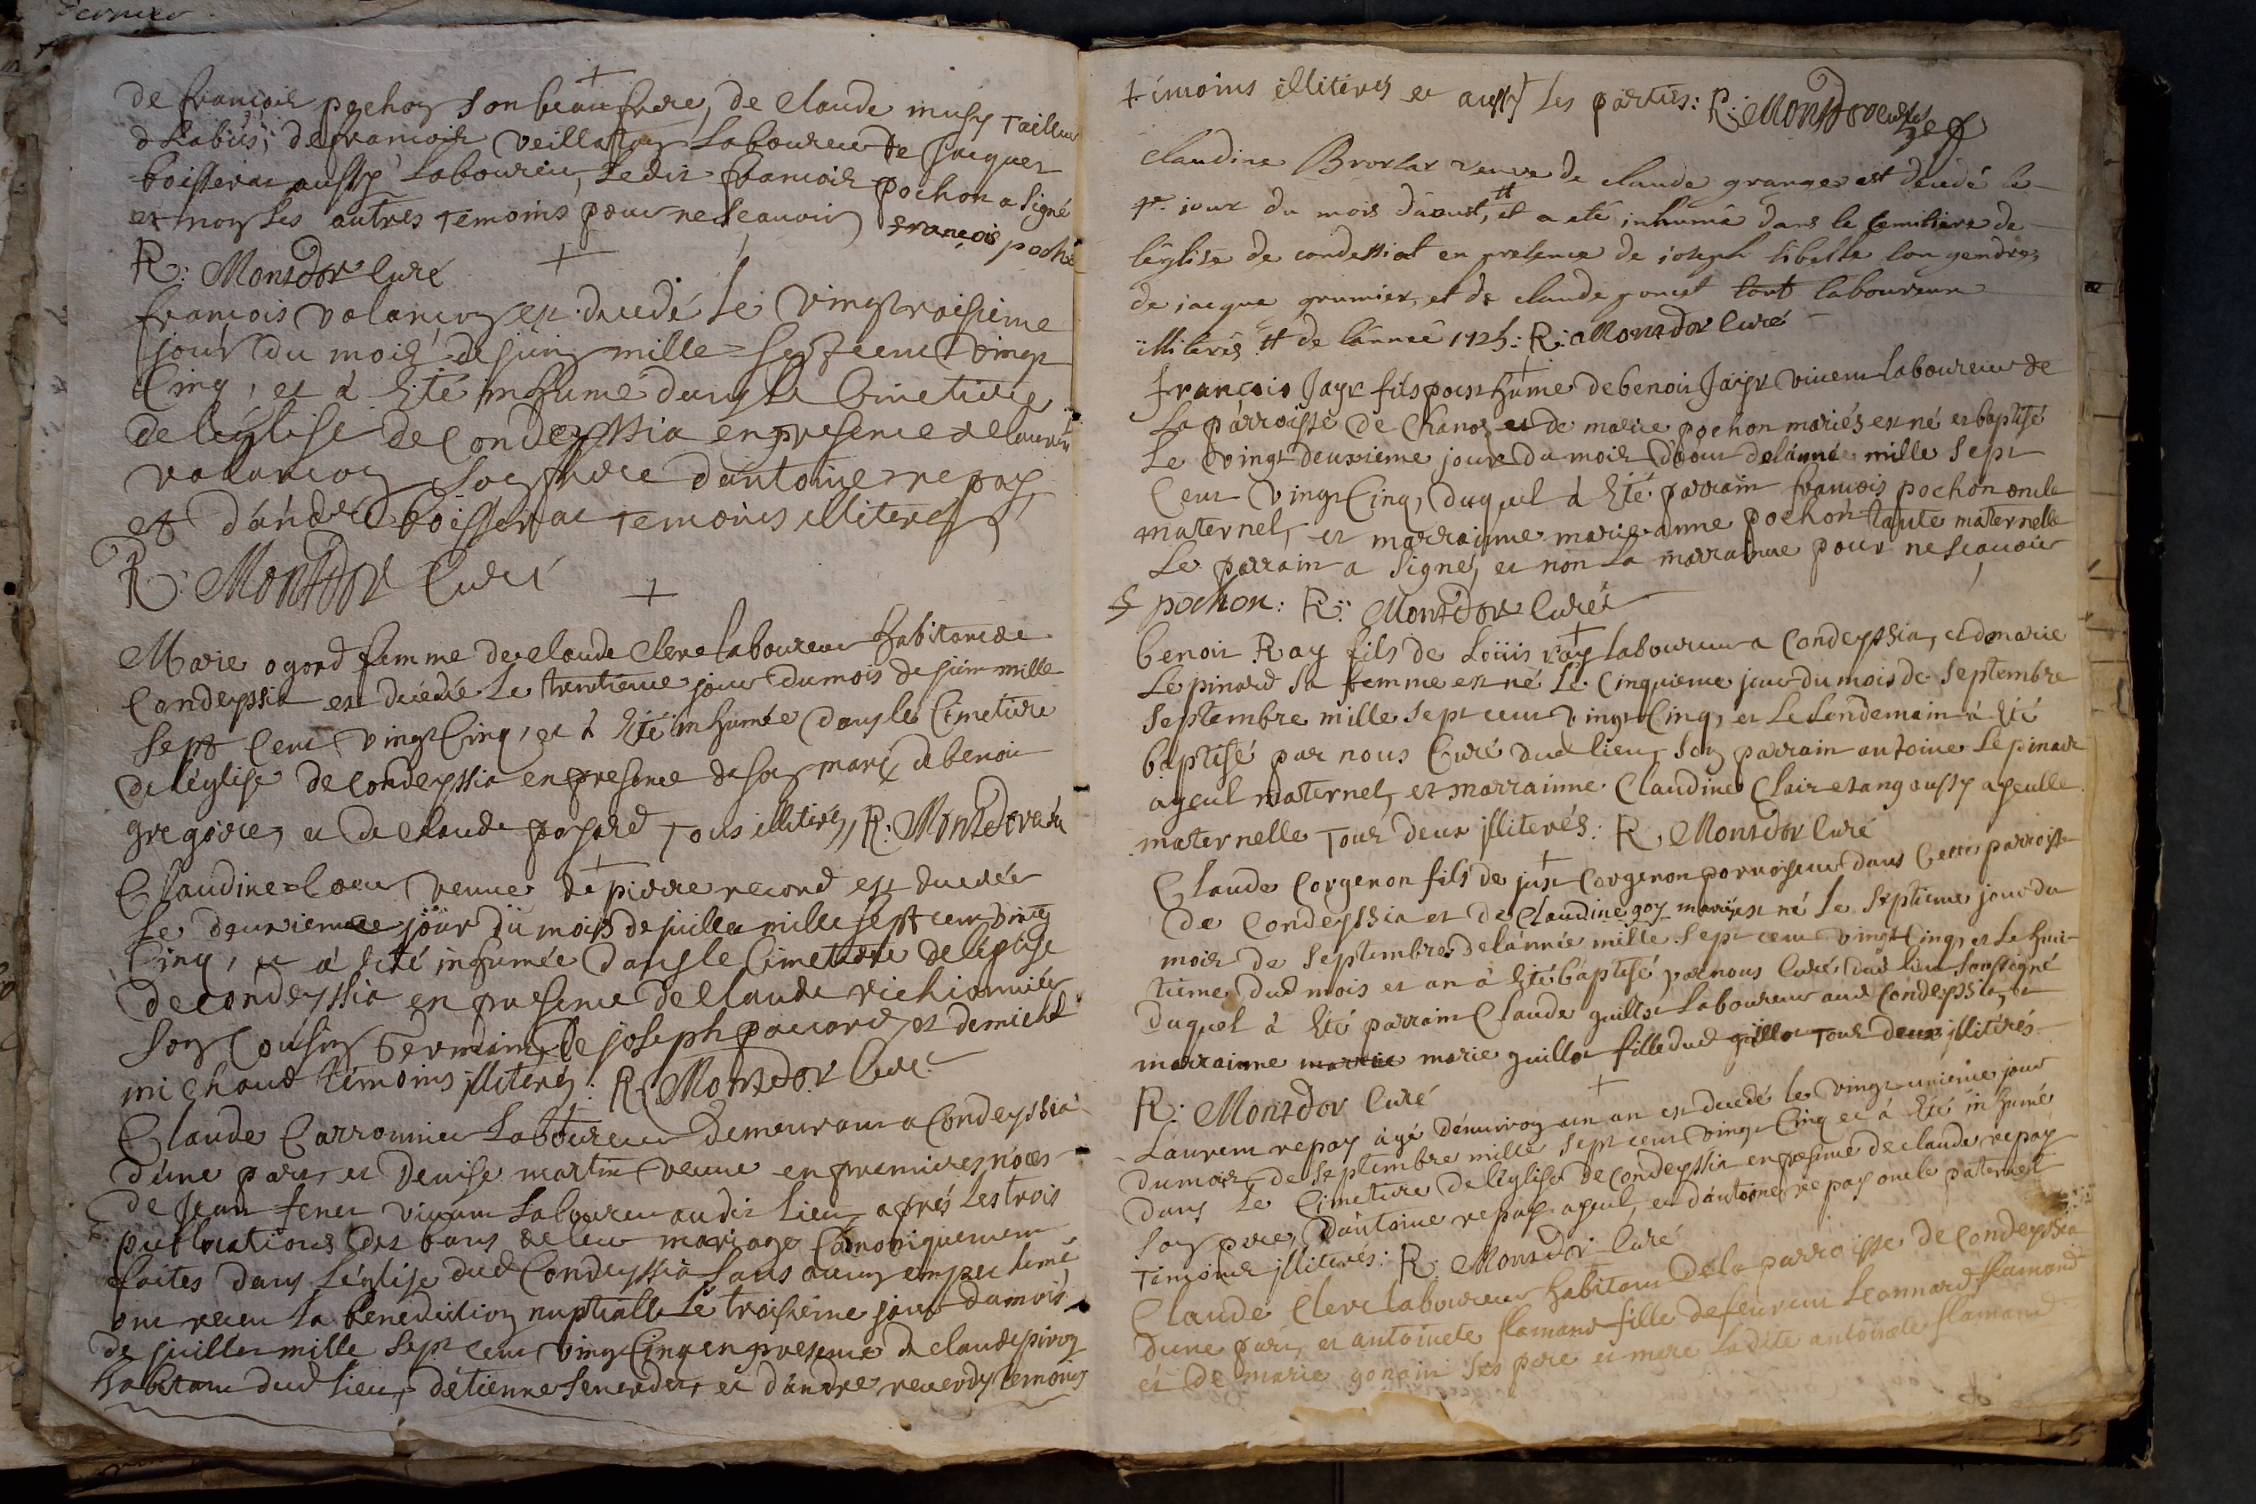 de françois pochon son beaufrere, de Claude musy Tailleur
d'habis, de françois veillas Laboureur de Jacques
boisserat aussy Laboureur, Ledit françois pochon a signé
et non les autres temoins pour ne sçavoir françois pochon
R: Montdor Curé
françois valançon est decedé le vingtroisieme
jour du mois de juin mille sept cent vingt
Cinq, et à Eté inhumé dans le Cimetiere
de l'église de Condeyssia en presence de laurent
valançon son frere d'antoine repay
et d'andré boisserat temoins illiterés
R: Montdor Curé
Marie ogord femme de claude Clerc laboureur habitant de
Condeyssia est decedée Le trentieme jour du mois de juin mille
sept Cent vingt Cinq, et à Eté inhumée dans le Cimetiere
de l'église de Condeyssia en presence de son mari de benoit
gregoire, et de Claude poyard Tous illiterés, R: Montdor curé
Claudine veuve de pierre recond est decedée
Le deuxieme jour du mois de juillet mille sept cent vingt
Cinq, et à Eté inhumée dans le Cimetiere de l'église
de condeyssia en presence de Claude richionnier
son Cousin Germain, de joseph paccard, et de michel
michaud témoins illiterés: R: Montdor Curé
Claude Carronnier Laboureur demeurant a Condeyssia
d'une part, et Denise martin veuve en premieres noces
de Jean fener vivant Laboureur audit Lieu, aprés Les trois
publications des bans de leur mariage Canoniquement
faites dans L'église dud Condeyssia sans aucun empechemé
ont receu La benediction nuptialle Le troisieme jour du mois
de juillet mille sept cent vingt Cinq en presence de claude piron
habitant dud Lieu, d'étienne, et d'andre reverdy temoins
témoins illiterés et aussy Les parties: R: Montdor curé
Claudine Brovlat veuve de claude granger est decedé le
4e. jour du mois d'aoust, # et a eté inhumé dans le Cemitiere de
l'église de condessiat en presence de joseph sibelle son gendre,
de jacque grumier, et de claude ponset tout laboureur
illiterés # de l'année 1725: R: Montdor Curé
françois Jayr fils posthume de benoit Jayr vivent laboureur de
La parroisse de Chanoz et de marie pochon mariés est né et baptisé
Le vingt deuxieme jour du mois d'aout de l'année mille sept
Cent vingt Cinq, duquel à Eté parrain françois pochon oncle
maternel, et marrainne marie anne pochon tante maternelle
Le parrain a signé, et non La marrainne pour ne sçavoir
f pochon: R: Montdor Curé
benoit Ray fils de Loüis ray laboureur a Condeyssia, et de marie
Lépinard sa femme est né Le Cinquieme jour du mois de septembre
septembre mille sept cent vingt Cinq, et Le Lendemain à Eté
baptisé par nous Curé dud lieu, son parrain antoine Lepinard
ayeul maternel, et marrainne Claudine Clairetang aussy ayeulle
maternelle Tous deux illiterés: R: Montdor Curé
Claude Corgenon fils de just Corgenon dans Cette parroisse
de Condeyssia et de Claudine goy mariés est né Le septieme jour du
mois de septembre de l'année mille sept cent vingt Cinq, et Le huit
tieme dud mois et an à Eté baptisé par nous Curé dud lieu soussigné
duquel à Eté parrain Claude guillot Laboureur aud Condeyssia, et
marrainne marie guillot fille dud guillot Tous deux illiterés
R: Montdor Curé
Laurent repay âgé d'environ un an est decedé le vingt unieme jour
du mois de septembre mille sept cent vingt Cinq et à Eté inhumé
dans Le Cimetiere de l'église de Condeyssia en presence de claude repay
son pere, d'antoine repay ayeul, et d'antoine repay oncle paternel
Temoins illiterés: R: Montdor Curé
Claude Clerc laboureur habitant de la parroisse de Condeyssia
d'une part, et antoinete flamand fille de feu Leonnard flamand
et de marie gonain ses pere et mere Ladite antoinete flamand